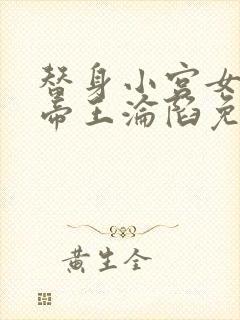 替身小宫女
帝王沦陷免
黄生全